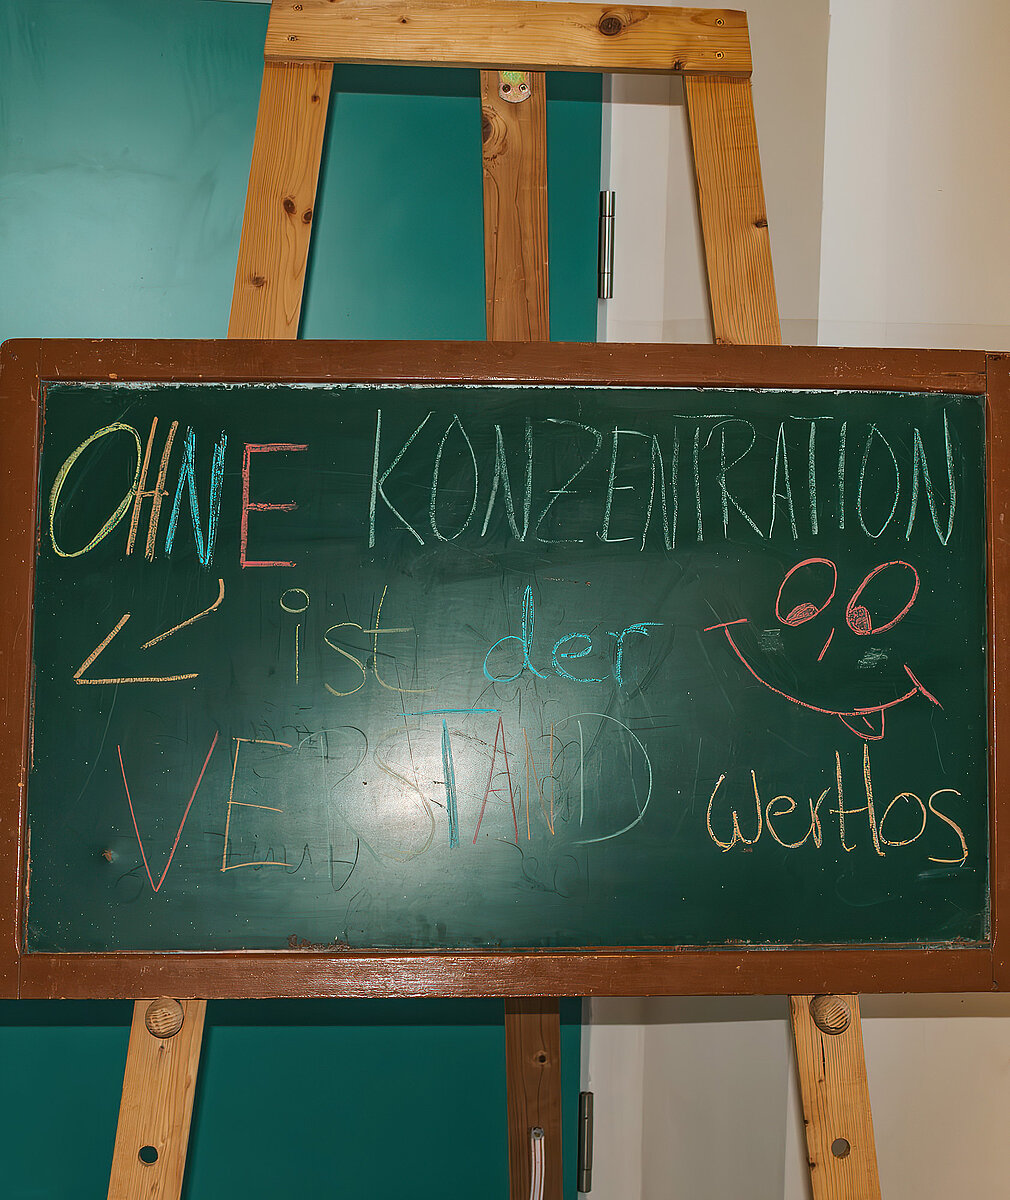 OHNE KONZENTRATION
ist der
VERSTAND wertlos